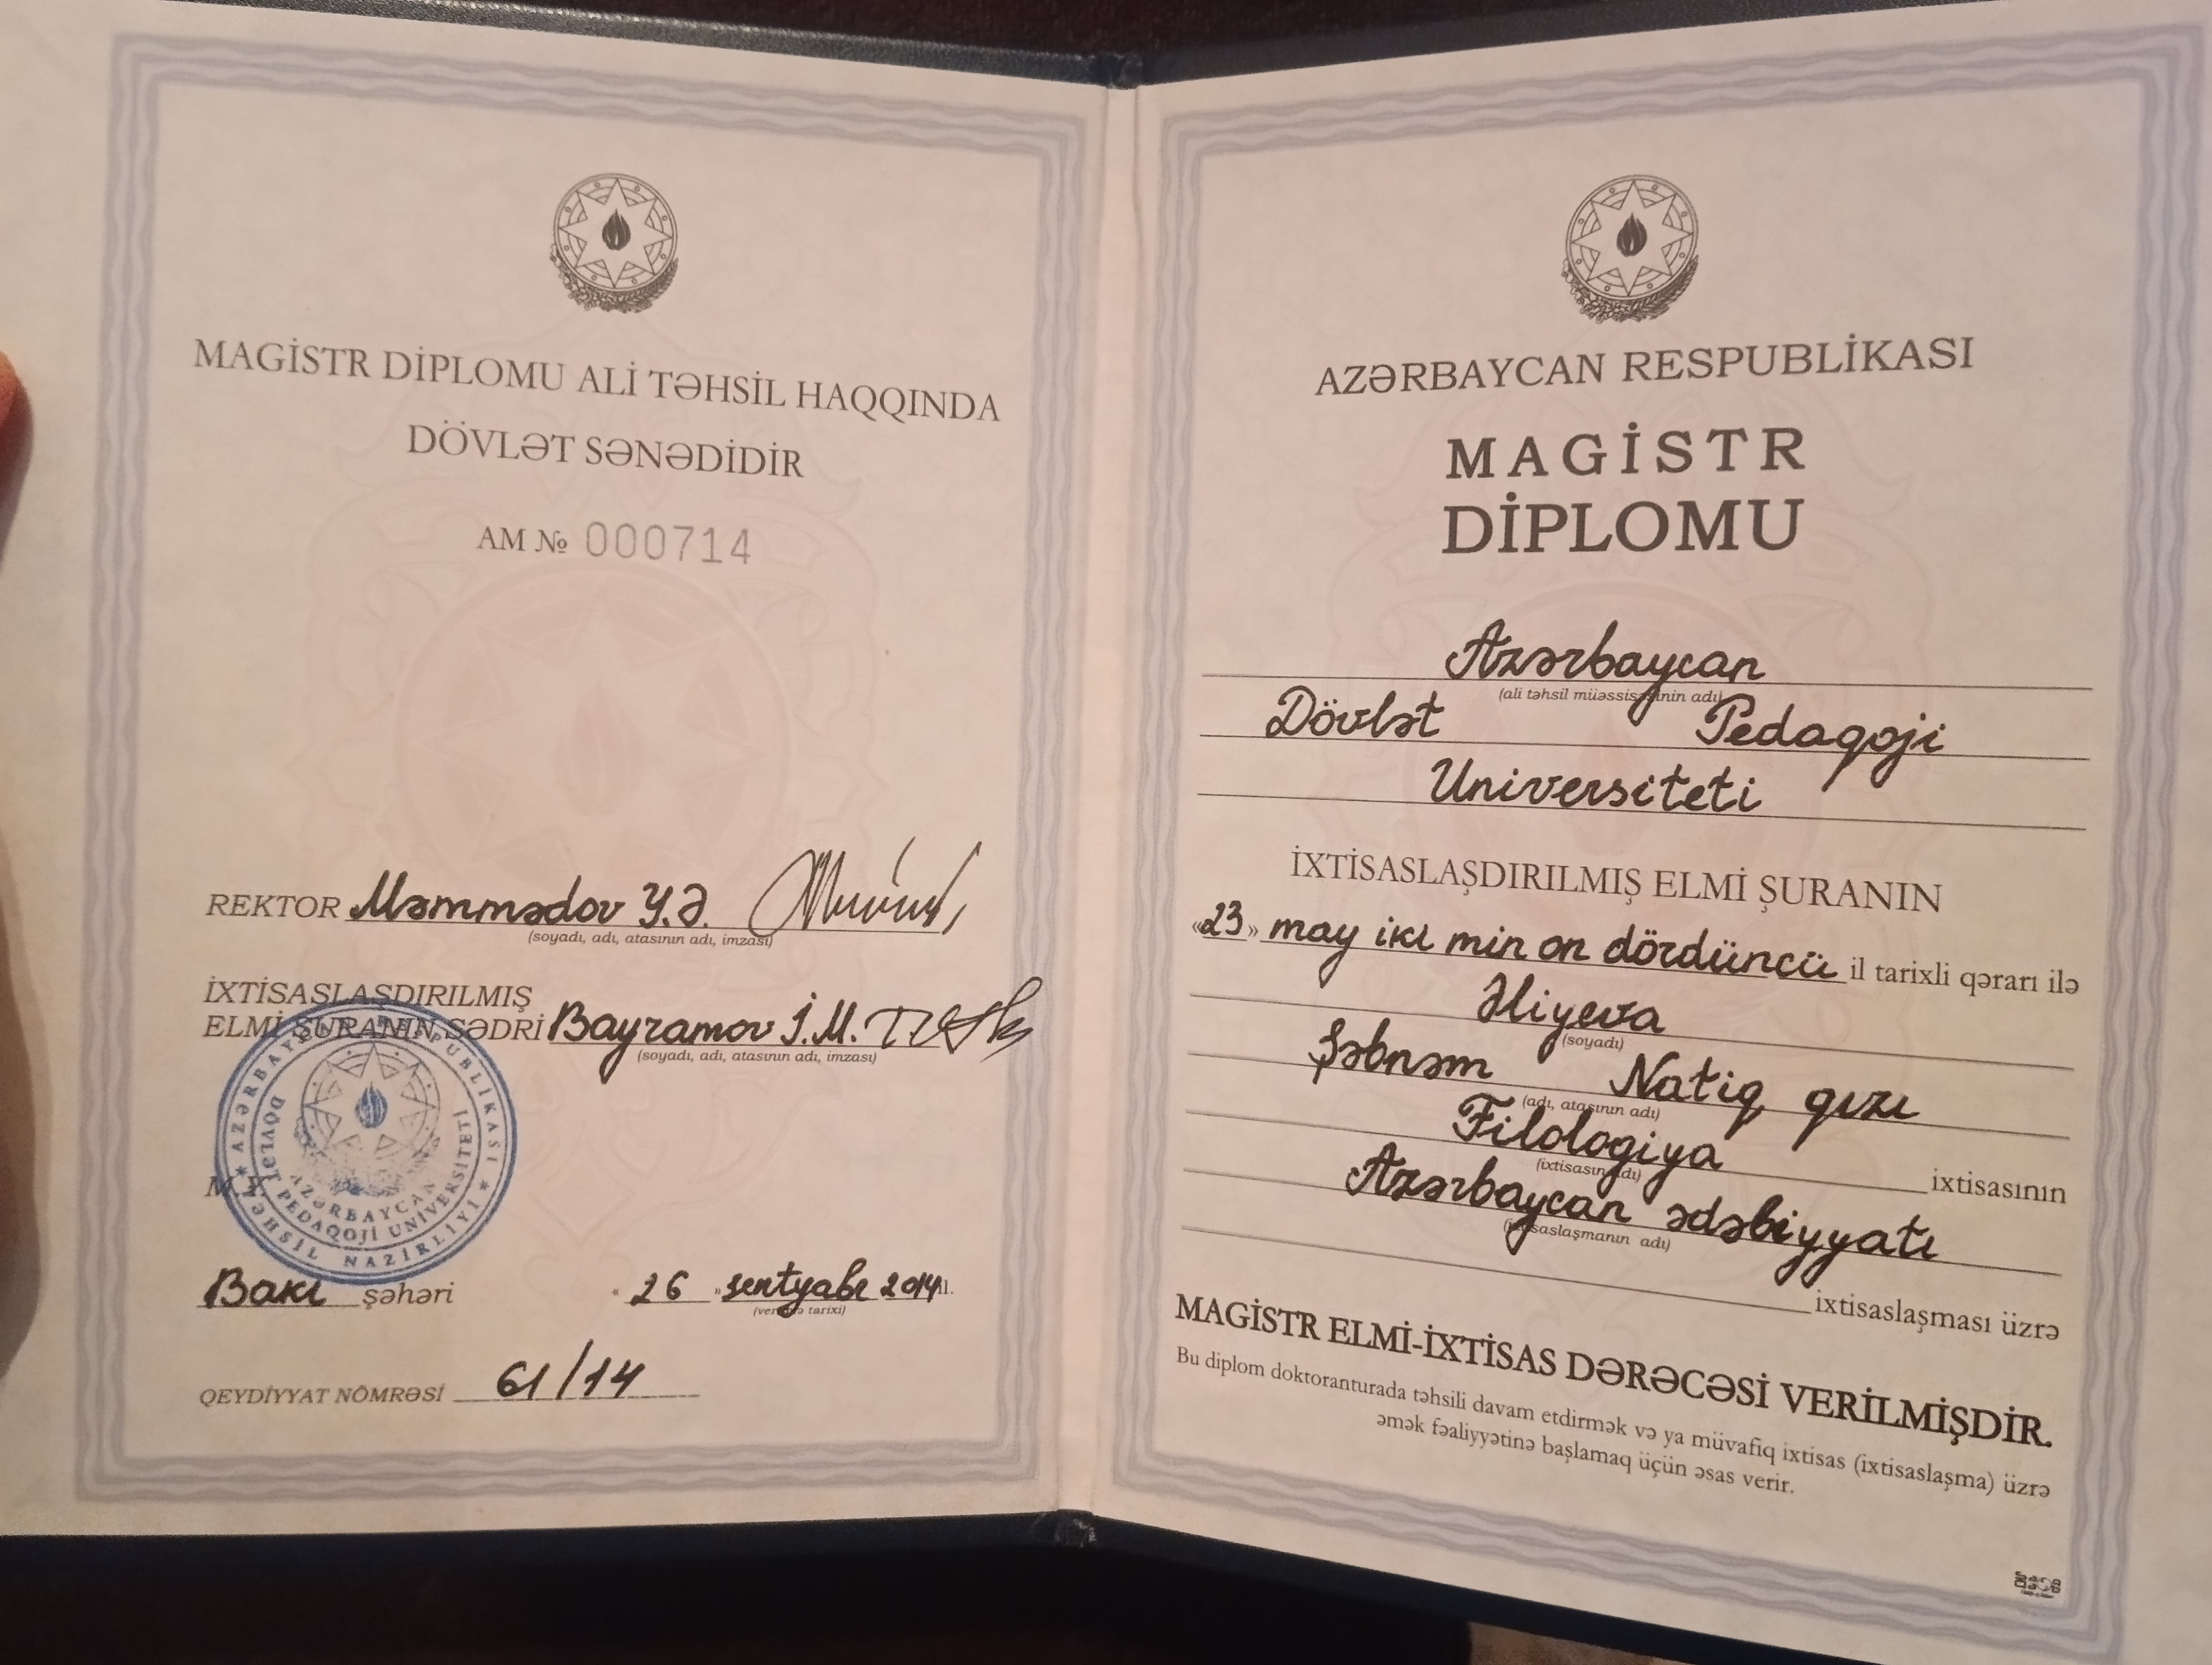 MAGİSTR DİPLOMU ALİ TƏHSİL HAQQINDA
DÖVLƏT SƏNƏDİDİR
AM № 000714
REKTOR Məmmədov Y.Ə.
(soyadı, adı, atasının adı, imzası)
İXTİSASLAŞDIRILMIŞ
ELMİ ŞURANIN SƏDRİ Bayramov İ.M.
(soyadı, adı, atasının adı, imzası)
M.Y.
AZƏRBAYCAN RESPUBLİKASI
TƏHSİL NAZİRLİYİ
AZƏRBAYCAN
DÖVLƏT PEDAQOJİ UNİVERSİTETİ
Bakı şəhəri «26» sentyabr 2014 il.
(verilmə tarixi)
QEYDİYYAT NÖMRƏSİ 61/14
AZƏRBAYCAN RESPUBLİKASI
MAGİSTR
DİPLOMU
Azərbaycan
(ali təhsil müəssisəsinin adı)
Dövlət Pedaqoji
Universiteti
İXTİSASLAŞDIRILMIŞ ELMİ ŞURANIN
«23» may iki min on dördüncü il tarixli qərarı ilə
Əliyeva
(soyadı)
Şəbnəm Natiq qızı
(adı, atasının adı)
Filologiya ixtisasının
(ixtisasın adı)
Azərbaycan ədəbiyyatı
(ixtisaslaşmanın adı)
ixtisaslaşması üzrə
MAGİSTR ELMİ-İXTİSAS DƏRƏCƏSİ VERİLMİŞDİR.
Bu diplom doktoranturada təhsili davam etdirmək və ya müvafiq ixtisas (ixtisaslaşma) üzrə
əmək fəaliyyətinə başlamaq üçün əsas verir.